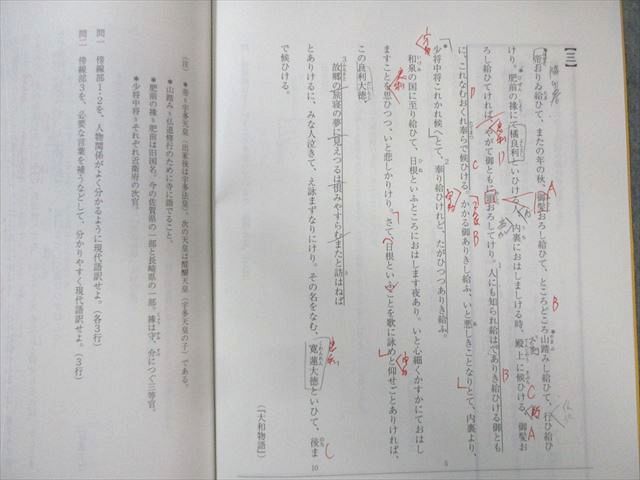 【三】
帝おりゐ給ひて、またの年の秋、御髪おろし給ひて、ところどころ山踏みし給ひて、行ひ給ひ
けり。肥前の掾にて橘良利といひける人、内裏におはしましける時、殿上に候ひける、御髪お
ろし給ひてければ、やがて御ともに頭おろしてけり。人にも知られ給はでありき給ひける御とも
に、これなむおくれ奉らで候ひける。かかる御ありきし給ふ、いと悪しきことなりとて、内裏より、
少将中将これかれ候へとて、奉り給ひけれど、たがひつつありき給ふ。
和泉の国に至り給ひて、日根といふところにおはします夜あり。いと心細くかすかにておはし
ますことを思ひつつ、いと悲しかりけり。さて、日根といふことを歌に詠めと仰せごとありければ、
この良利大徳、
故郷の旅寝の夢に見えつるは恨みやすらむまたと訪はねば
とありけるに、みな人泣きて、え詠まずなりにけり。その名をなむ、寛蓮大徳といひて、後ま
で候ひける。
（『大和物語』）
5
10
（注）
＊帝＝宇多天皇（出家後は宇多法皇）。次の天皇は醍醐天皇（宇多天皇の子）である。
＊山踏み＝仏道修行のために寺に詣でること。
＊肥前の掾＝肥前は旧国名。今の佐賀県の一部と長崎県の一部。掾は守、介につぐ三等官。
＊少将中将＝それぞれ近衛府の次官。
問一　傍線部1・2を、人物関係がよく分かるように現代語訳せよ。（各3行）
問二　傍線部3を、必要な言葉を補うなどして、分かりやすく現代語訳せよ。（3行）